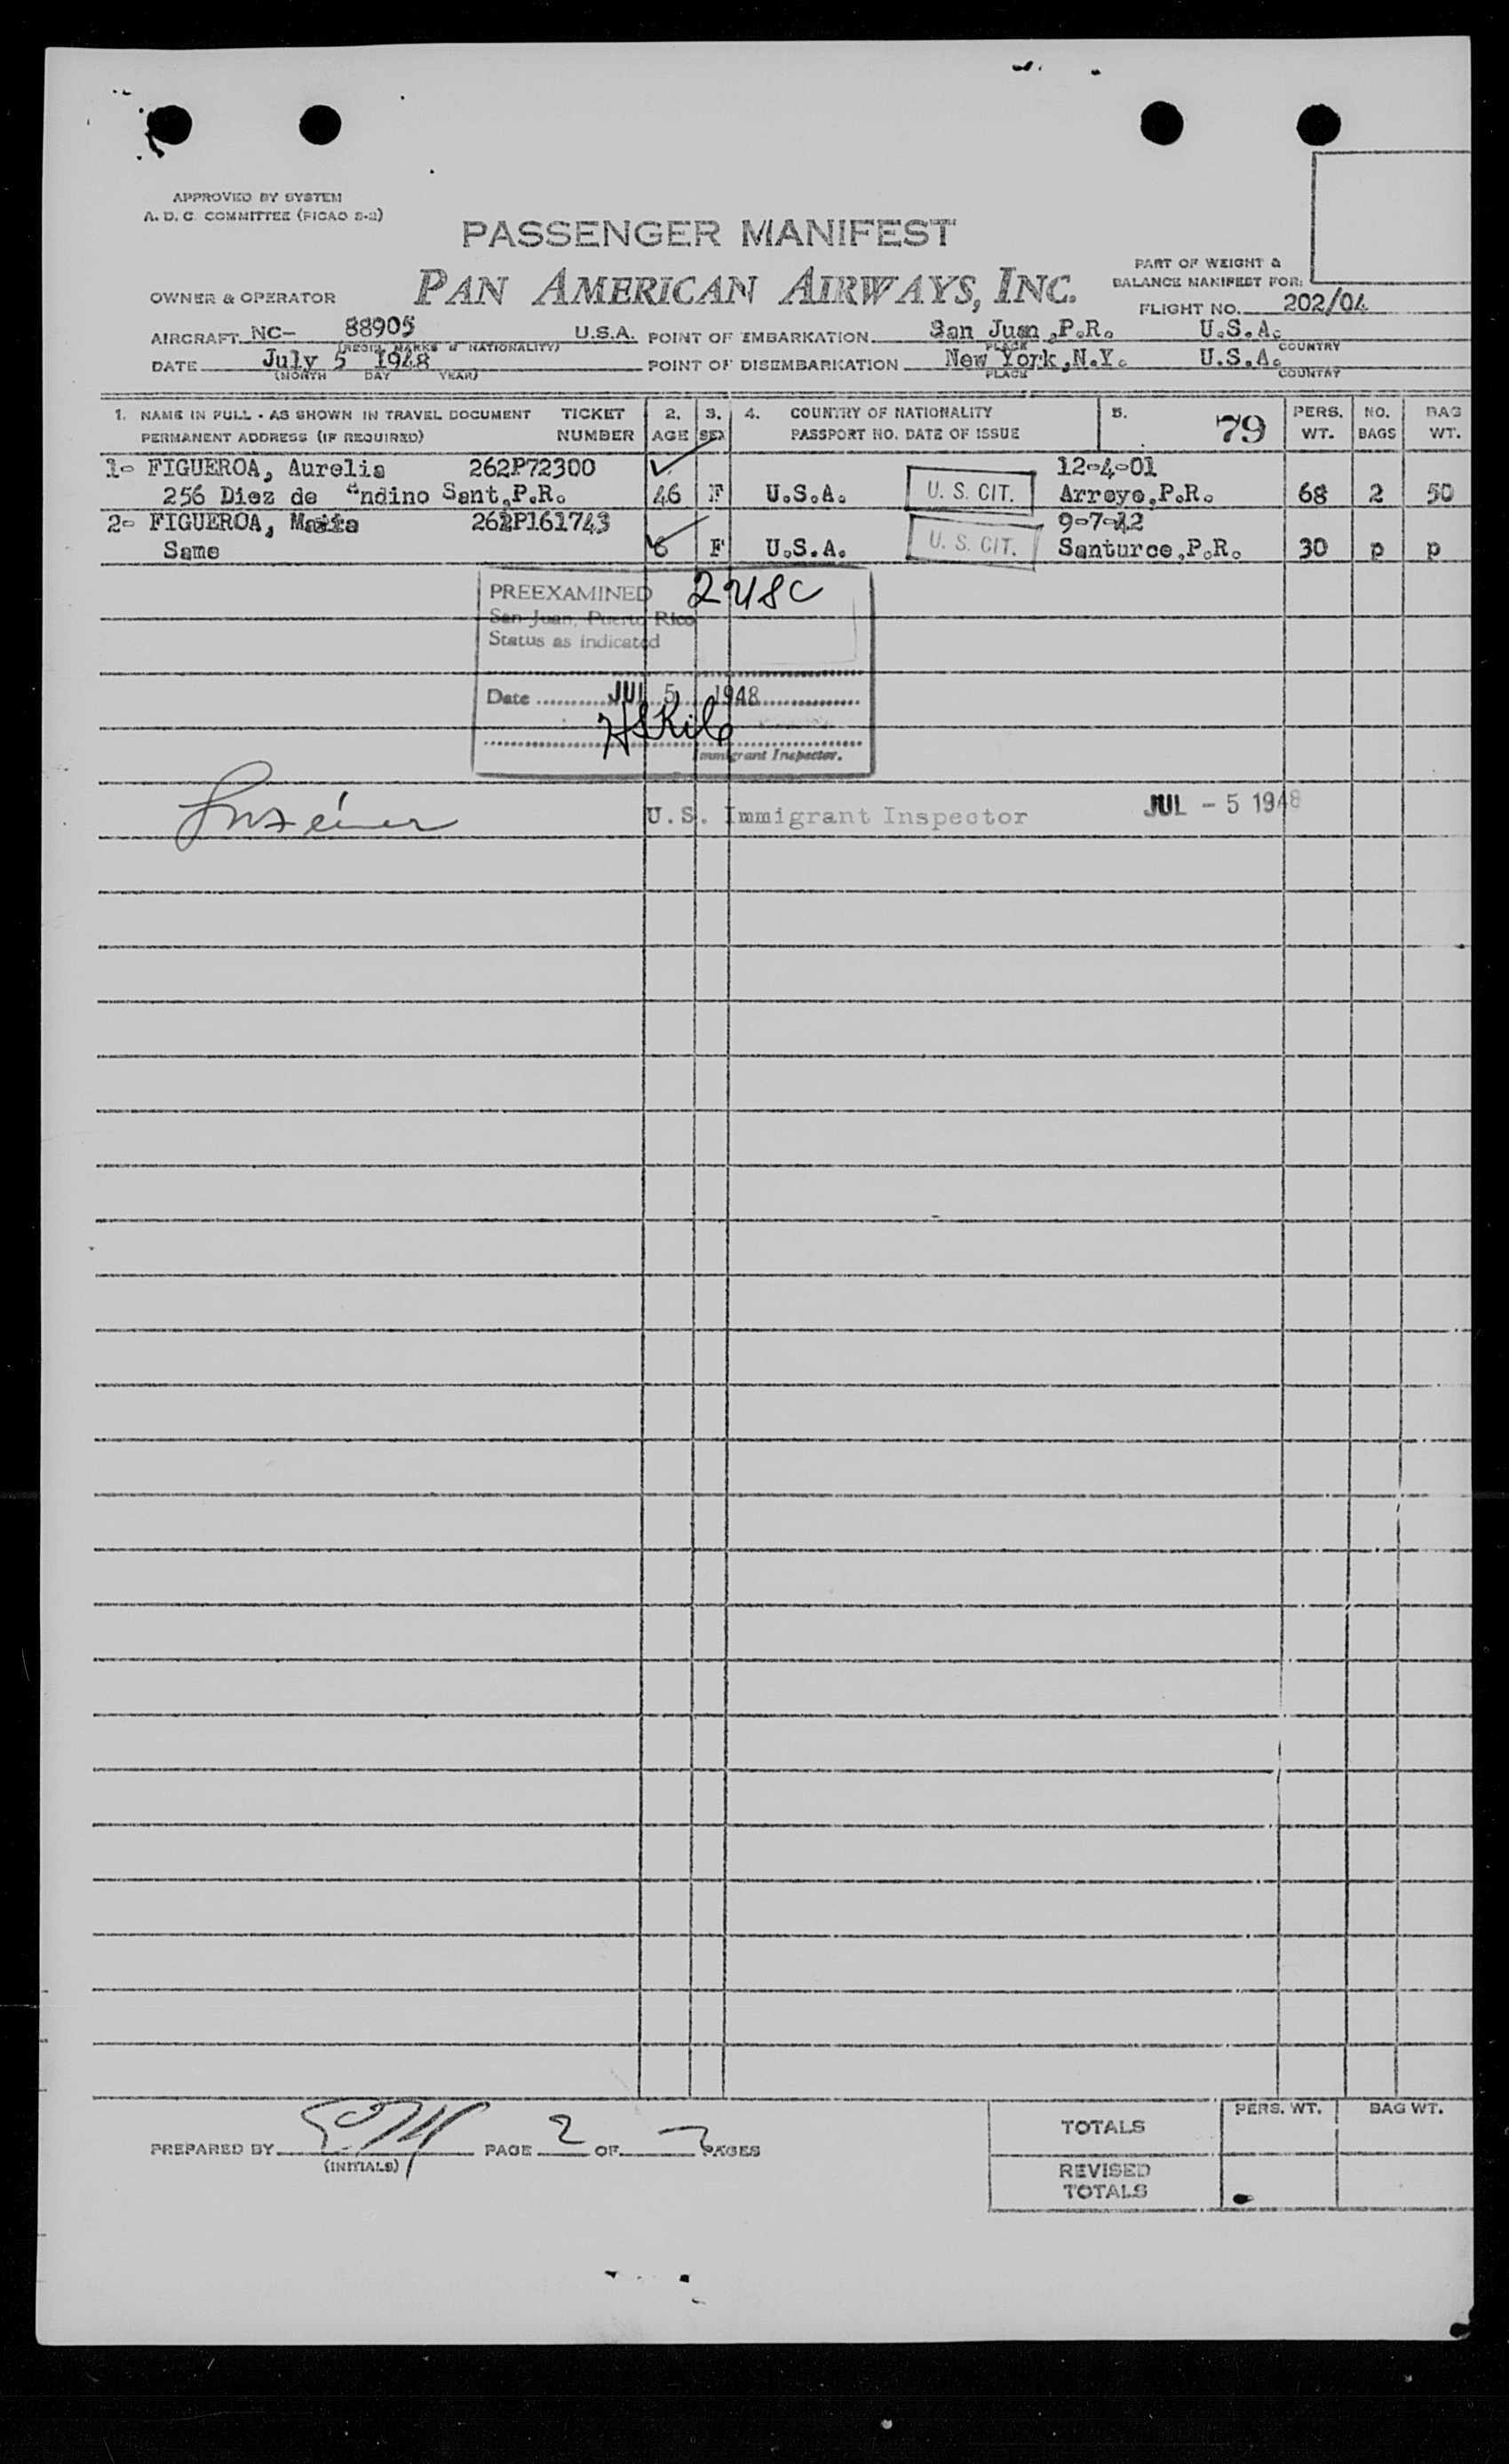 APPROVED BY SYSTEM
A. D. C. COMMITTEE (PICAO S-2)
PASSENGER MANIFEST
PAN AMERICAN AIRWAYS, INC.
PART OF WEIGHT &
BALANCE MANIFEST FOR:
OWNER & OPERATOR
FLIGHT NO. 202/04
AIRCRAFT NC- 88905 U.S.A. POINT OF EMBARKATION San Juan, P.R. U.S.A.
(REGIS. MARKS & NATIONALITY) PLACE COUNTRY
DATE July 5 1948 POINT OF DISEMBARKATION New York, N.Y. U.S.A.
(MONTH DAY YEAR) PLACE COUNTRY
1. NAME IN FULL - AS SHOWN IN TRAVEL DOCUMENT TICKET 2. 3. 4. COUNTRY OF NATIONALITY 5. 79 PERS. NO. BAG
PERMANENT ADDRESS (IF REQUIRED) NUMBER AGE SEX PASSPORT NO. DATE OF ISSUE WT. BAGS WT.
1- FIGUEROA, Aurelia 262P72300 12-4-01
256 Diez de Andino Sant.P.R. 46 F U.S.A. U. S. CIT. Arroyo,P.R. 68 2 50
2- FIGUEROA, 262P161743
Same F U.S.A. U. S. CIT. Santurce,P.R. 30 p p
PREEXAMINED 2 USC
San Juan, Puerto Rico
Status as indicated
Date JUL 5 1948
Immigrant Inspector.
U.S. Immigrant Inspector JUL - 5 1948
PREPARED BY PAGE 2 OF PAGES
(INITIALS)
TOTALS PERS. WT. BAG WT.
REVISED
TOTALS